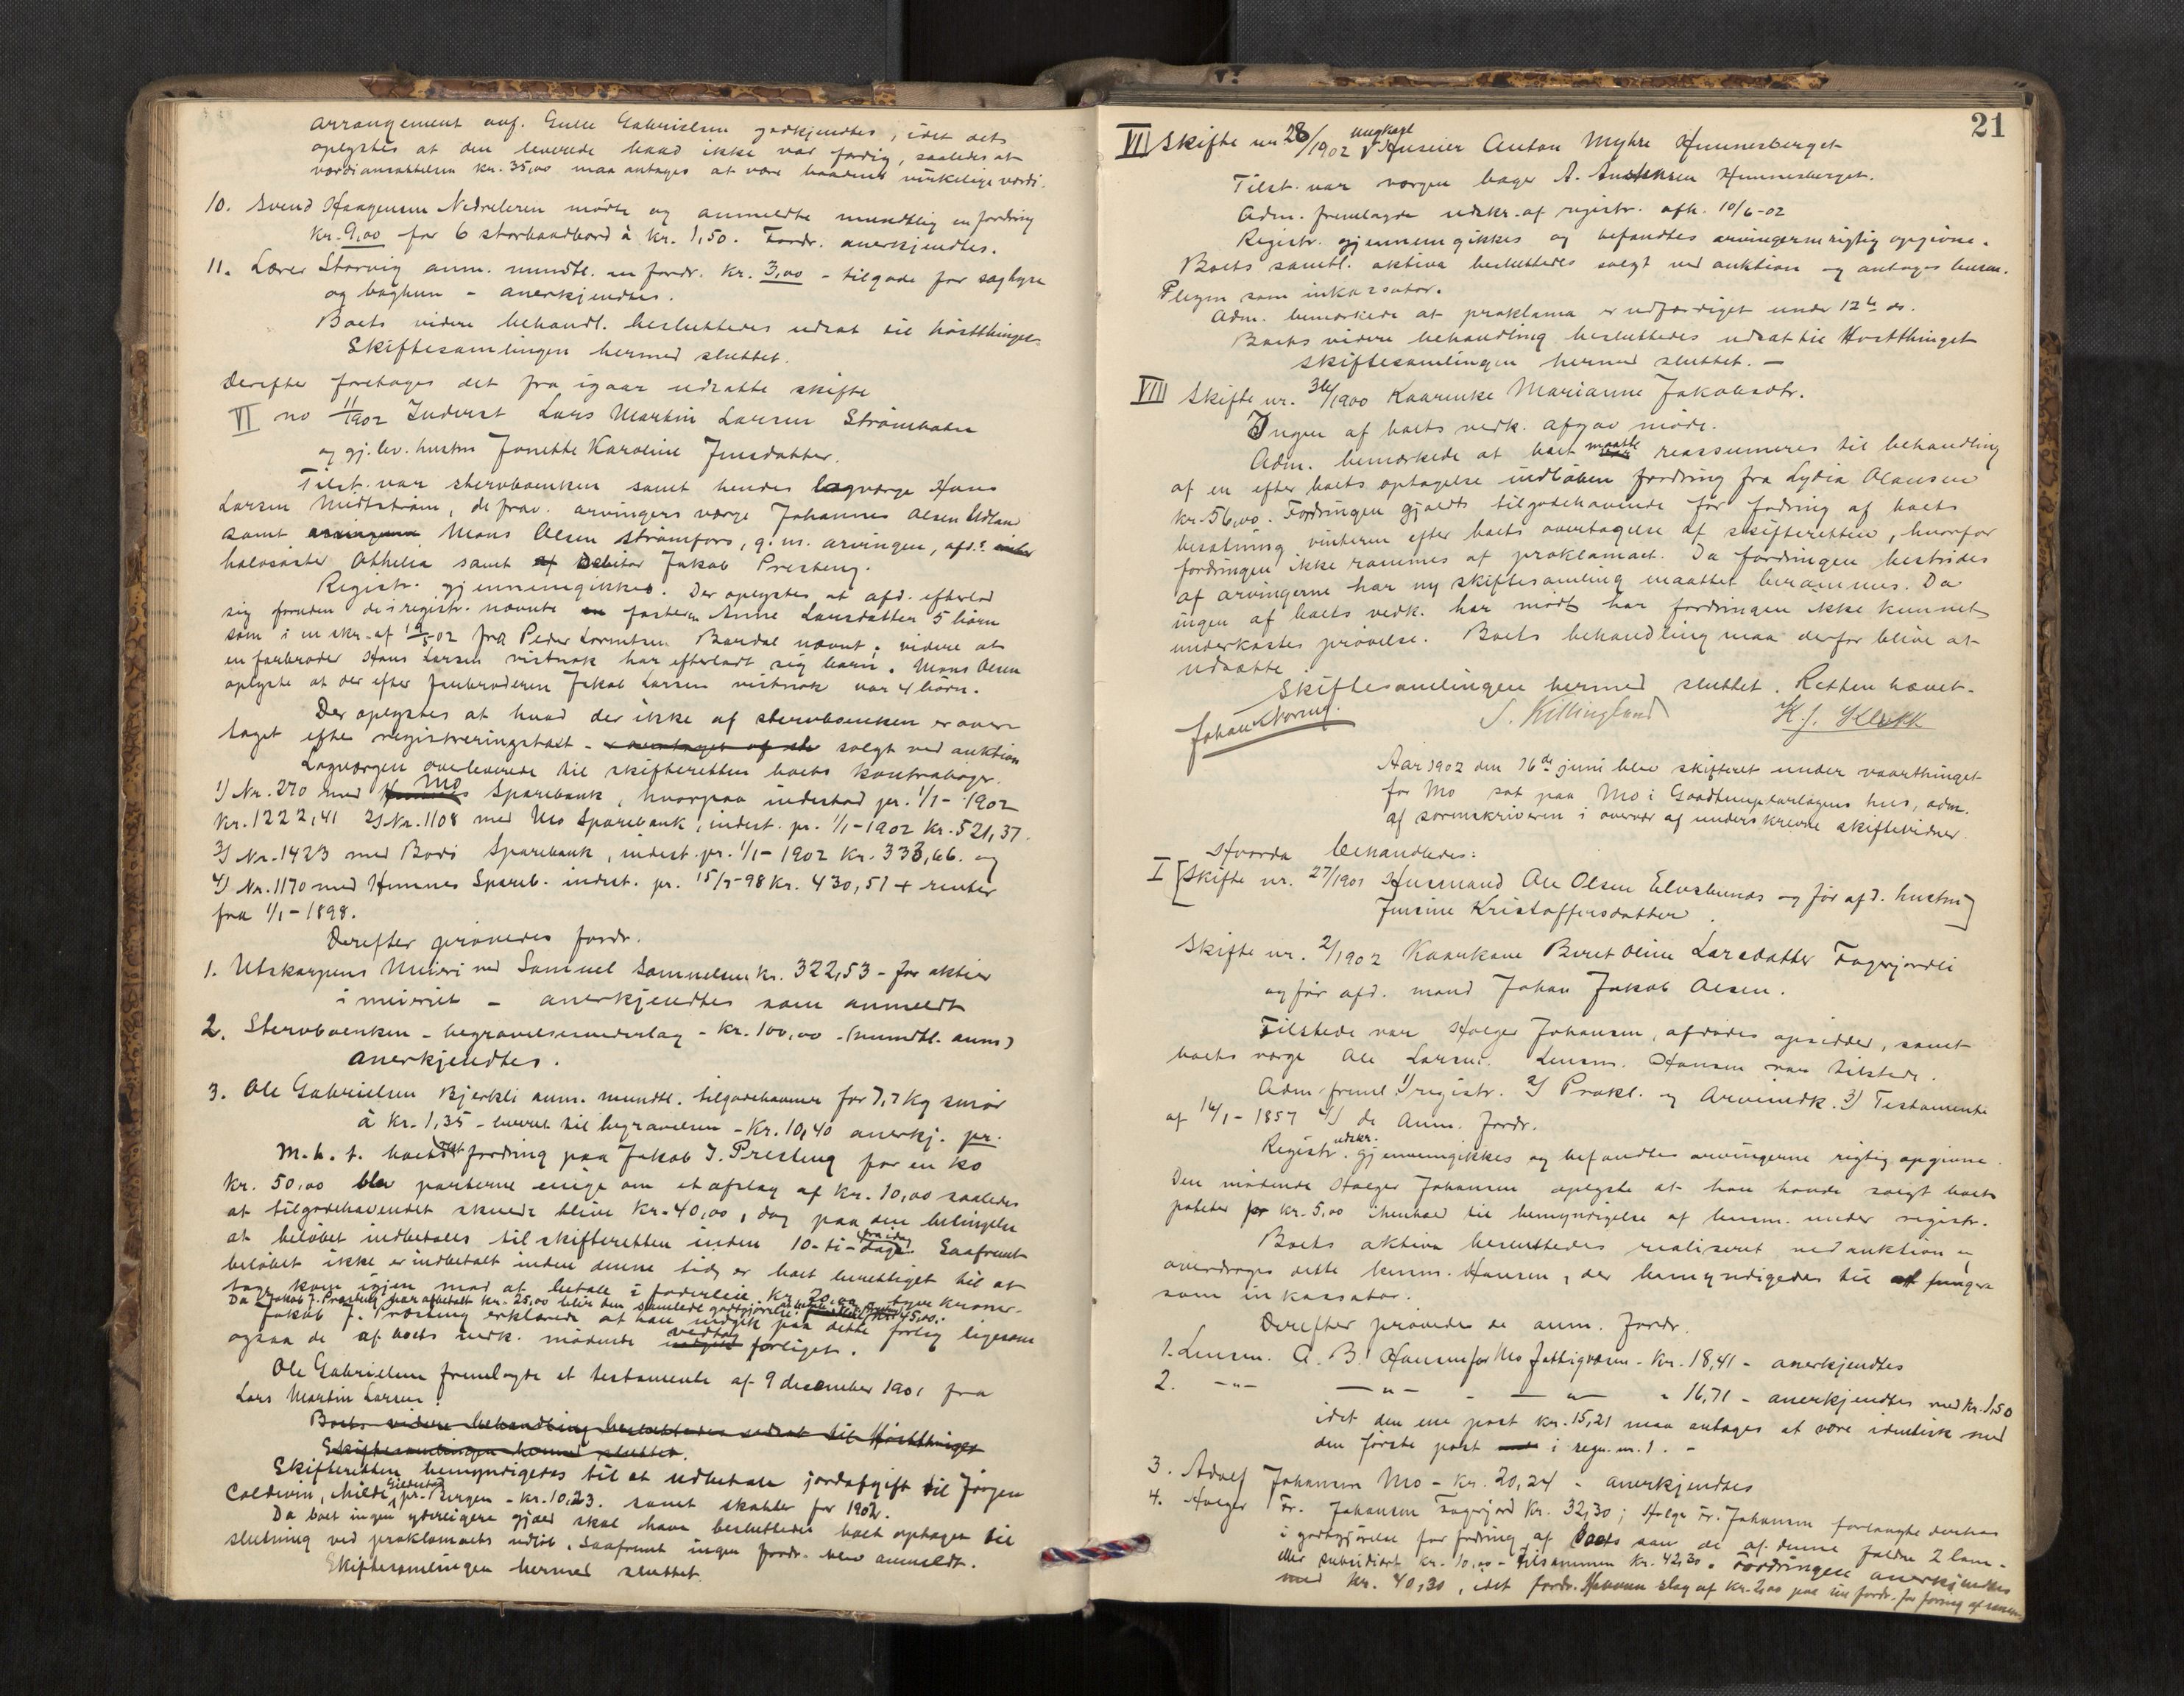 arrangement ang. Gulle Gabrielsen godkjendtes, idet det
oplystes at den leverede baad ikke var færdig, saaledes at
værdiansættelsen kr. 35,00 maa antages at være baadens virkelige værdi.
10. Svend Haagensen Nedreleren mødte og anmeldte mundtlig en fordring
kr. 9,00 for 6 storbaadbord à kr. 1,50. Fordr. anerkjendtes.
11. Lærer Storvig anm. mundtl. en fordr. kr. 3,00 - tilgode for saghyre
og baghun - anerkjendtes.
Boets videre behandl. besluttedes udsat til høstthinget
Skiftesamlingen hermed sluttet.
Derefter foretoges det fra igaar udsatte skifte
VI no 11/1902 Inderst Lars Martin Larsen Strømbotn
og gj. lev. hustru Jonette Karoline Jensdatter.
Tilst. var stervboenken samt hendes lagværge Hans
Larsen Midtstrøm, de frav. arvingers værge Johannes Olsen Utland
samt arvingerne Mons Olsen Strømfors, g. m. arvingen, afd.s
halvsøster Athelia samt af Debitor Jakob Presteng.
Registr. gjennemgikkes. Der oplystes at afd. efterlod
sig foruden de i registr. nævnte en fasteren Anne Larsdatter 5 børn
som i en skr. af 19/5-02 fra Peder Lorntsen Bardal nævnt; videre at
en farbroder Hans Larsen vistnok har efterladt sig barn. Mons Olsen
oplyste at der efter farbroderen Jakob Larsen vistnok var 4 børn.
Der oplystes at hvad der ikke af stervboenken er over-
taget efter registreringstaxt - overtaget af de solgt ved auktion
Lagværgen overleverede til skifteretten boets kontrabøger.
1) Nr. 270 med Mo Sparebank, hvorpaa indestod pr. 1/1-1902
kr. 1222,41 2) Nr. 1108 med Mo Sparebank, indest. pr. 1/1-1902 kr. 521,37.
3) Nr. 1423 med Bodø Sparebank, indest. pr. 1/1-1902 kr. 333,66. og
4) Nr. 1170 med Hemnes Spareb. indest. pr. 15/7-98 kr. 430,51 + renter
fra 1/1-1898.
Derefter prøvedes fordr.
1. Utskarpens Meieri ved Samuel Samuelsen kr. 322,53 - for aktier
i meieriet - anerkjendtes som anmeldt
2. Stervboenken - begravelsesvederlag - kr. 100,00 - (mundtl. anm)
anerkjendtes.
3. Ole Gabrielsen Bjerkli anm. mundtl. tilgodehavende for 7,7 kg smør
à kr. 1,35 - leveret til begravelsen - kr. 10,40 anerkj. pr.
M. h. t. boets fordring paa Jakob J. Presteng for en ko
kr. 50,00 blev parterne enige om et afslag af kr. 10,00 saaledes
at tilgodehavendet skulde blive kr. 40,00, dog paa den betingelse
at beløbet indbetales til skifteretten inden 10-ti-dage fra idag. Saafremt
beløbet ikke er indbetalt inden denne tid, er boet berettiget til at
tage koen igjen mod at betale i foderleie kr. 20,00 - tyve kroner.
Da Jakob J. Presteng har afbetalt kr. 25,00 blir den samlede godtgjørelse kr. 45,00.
Jakob J. Presteng erklærede at han indgik paa dette forlig ligesom
ogsaa de af boets vedk. mødende vedtog forliget.
Ole Gabrielsen fremlagde et testamente af 9 december 1901 fra
Lars Martin Larsen.
Boets videre behandling besluttedes udsat til Høstthinget
Skiftesamlingen hermed sluttet.
Skifteretten bemyndigedes til at udbetale jordafgift til Jørgen
Coldevin, Milde pr. Bergen - kr. 10,23. samt skatter for 1902.
Da boet ingen yderligere gjæld skal have besluttedes boet optaget til
slutning ved proklamaets udløb, saafremt ingen fordr. blev anmeldt.
Skiftesamlingen hermed sluttet.
21
VII Skifte nr 28/1902 ungkarl Huseier Anton Myhre Hemnesberget
Tilst. var værgen bager A. Andersen Hemnesberget.
Adm. fremlagde udskr. af registr. afh. 10/6-02
Registr. gjennemgikkes og befandtes arvingerne rigtig opgivne.
Boets samtl. aktiva besluttedes solgt ved auktion og antoges lensm.
Plegm som inkassator.
Adm. bemærkede at proklama er udfærdiget under 12te ds.
Boets videre behandling besluttedes udsat til Høstthinget
Skiftesamlingen hermed sluttet. -
VIII Skifte nr. 36/1900 Kaarenke Marianne Jakobsdtr.
Ingen af boets vedk. afgav møde.
Adm. bemærkede at boet maatte reassumeres til behandling
af en efter boets optagelse indløben fordring fra Lydia Olausen
kr. 56,00. Fordringen gjældt tilgodehavende for fodring af boets
besætning vinteren efter boets overtagelse af skifteretten, hvorfor
fordringen ikke rammes af proklamaet. Da fordringen bestrides
af arvingerne har ny skiftesamling maattet berammes. Da
ingen af boets vedk. har mødt har fordringen ikke kunnet
underkastes prøvelse. Boets behandling maa derfor blive at
udsætte.
Skiftesamlingen hermed sluttet. Retten hævet.
Johan Noring. S. Killingland K. J. Klækk
Aar 1902 den 16de juni blev skifteret under vaarthinget
for Mo sat paa Mo i Goodtemplarlogens hus, adm.
af sorenskriveren i overvær af underskrevne skiftevidner.
Hvorda behandledes:
I [Skifte nr. 27/1901 Husmand Ole Olsen Elvelunds og før afd. hustru]
Jensine Kristoffersdatter.
Skifte nr. 2/1902 Kaarkone Beret Oline Larsdatter Fagerjordli
og før afd. mand Johan Jakob Olsen.
Tilstede var Holger Johansen, afdødes opsidder, samt
boets værge Ole Larsen. Lensm. Hansen var tilstede.
Adm. freml. 1) registr. 2) Prokl. og Arveindk. 3) Testamente
af 16/1-1857 4) de Anm. fordr.
Registr. udskr. gjennemgikkes og befandtes arvingerne rigtig opgivne.
Den mødende Holger Johansen oplyste at han havde solgt boets
poteter for kr. 5,00 ihenhold til bemyndigelse af lensm. under registr.
Boets aktiva besluttedes realiseret ved auktion og
overdroges dette lensm. Hansen, der bemyndigedes til at fungere
som inkassator.
Derefter prøvedes de anm. fordr.
1. Lensm. A. B. Hansen for Mo fattigvæsen - kr. 18,41 - anerkjendtes
2. -"- -"- - -"- - 16,71 - anerkjendtes med kr. 1,50
idet den ene post kr. 15,21 maa antages at være identisk med
den første post i regn. nr. 1. -
3. Adolf Johansen Mo - kr. 20,24 - anerkjendtes
4. Holger Fr. Johansen Fagerjord kr. 32,30; Holger Fr. Johansen forlangte derhos
i godtgjørelse for fodring af boets sau de af denne faldne 2 lam -
eller subsidiært kr. 10,00 - tilsammen kr. 42,30. Fordringen anerkjendtes
med kr. 40,30, idet fordr. slog af kr. 2,00 paa sin fordr. for foring af sauen.